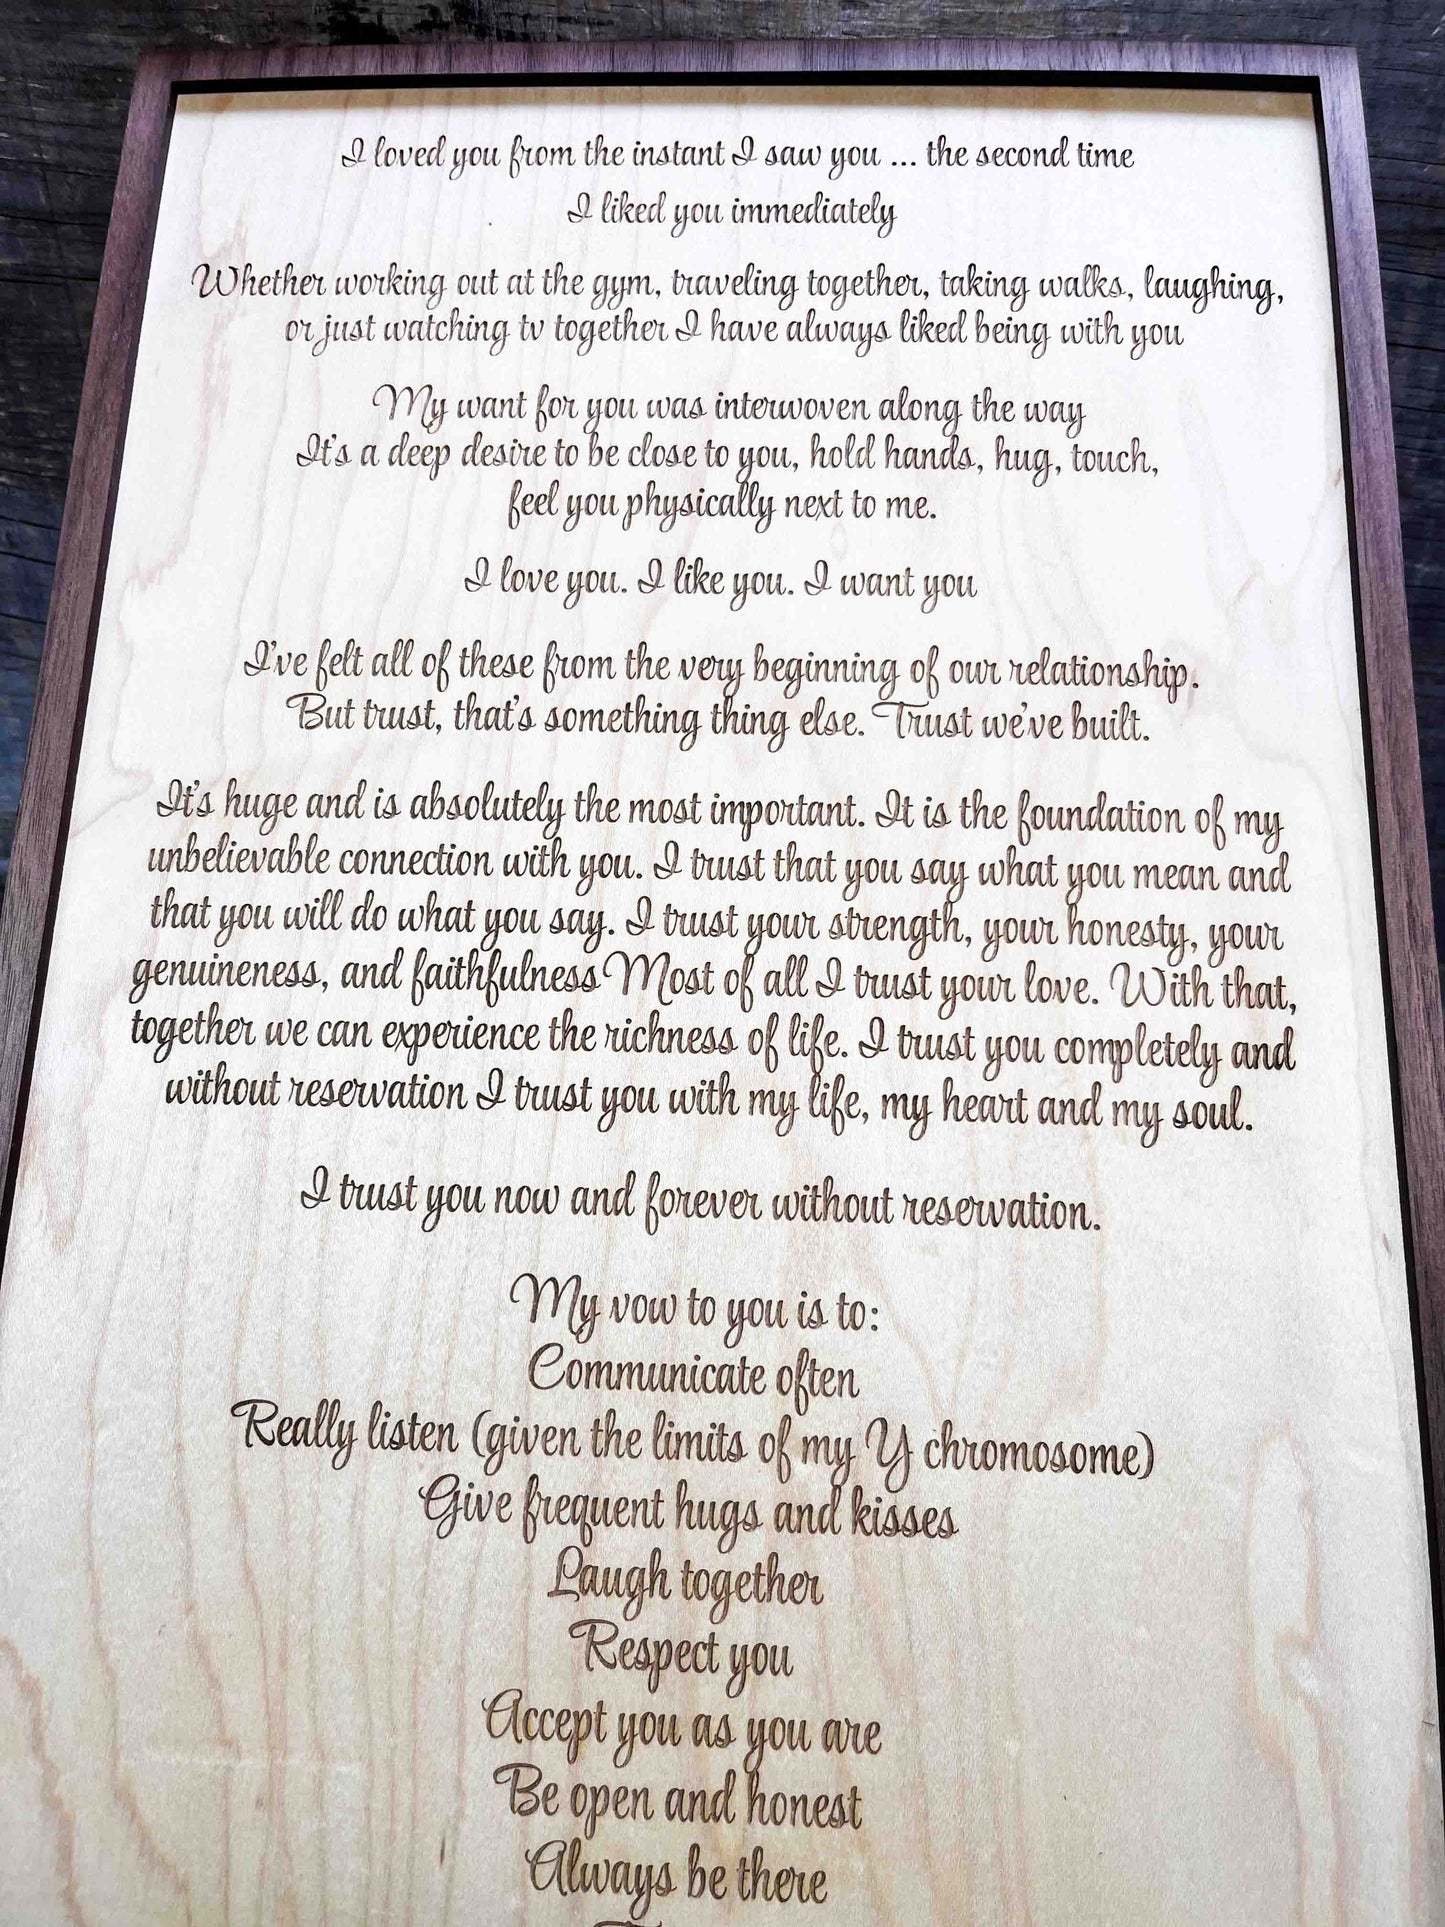 I loved you from the instant I saw you ... the second time
I liked you immediately
Whether working out at the gym, traveling together, taking walks, laughing,
or just watching tv together I have always liked being with you
My want for you was interwoven along the way
It's a deep desire to be close to you, hold hands, hug, touch,
feel you physically next to me.
I love you. I like you. I want you
I've felt all of these from the very beginning of our relationship.
But trust, that's something thing else. Trust we've built.
It's huge and is absolutely the most important. It is the foundation of my
unbelievable connection with you. I trust that you say what you mean and
that you will do what you say. I trust your strength, your honesty, your
genuineness, and faithfulness Most of all I trust your love. With that,
together we can experience the richness of life. I trust you completely and
without reservation I trust you with my life, my heart and my soul.
I trust you now and forever without reservation.
My vow to you is to:
Communicate often
Really listen (given the limits of my Y chromosome)
Give frequent hugs and kisses
Laugh together
Respect you
Accept you as you are
Be open and honest
Always be there